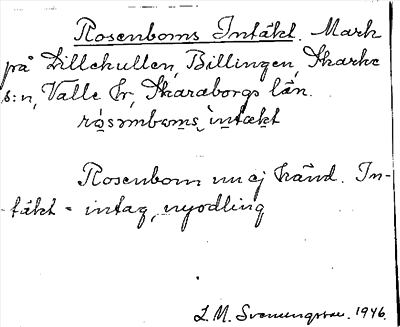 Rosenboms Intäkt. Mark
på Lillekullen, Billingen, Skarke
s:n, Valle hr, Skaraborgs län.
rósəmbωms intækt
Rosenbom nu ej känd. In-
täkt = intag, nyodling
L. M. Svenungsson. 1946.